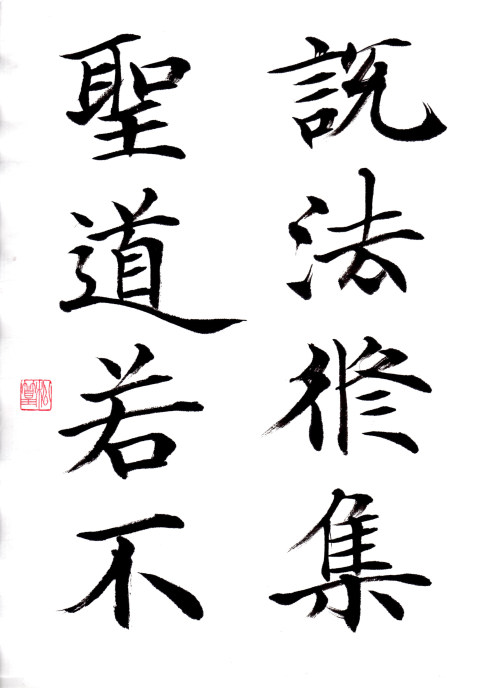 説法修集
聖道若不